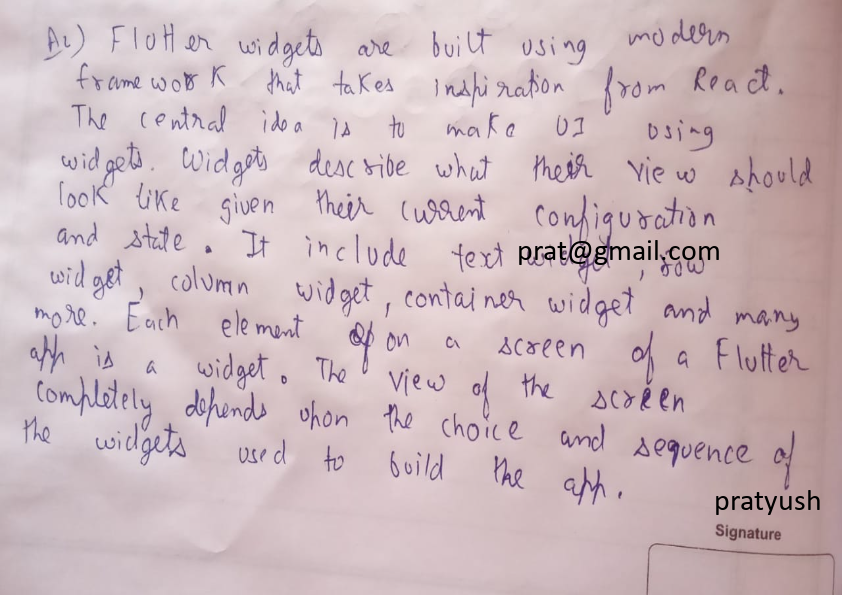 A2) Flutter widgets are built using modern
framework that takes inspiration from React.
The central idea is to make UI using
widgets. Widgets describe what their view should
look like given their current configuration
and state. It include text widget, row
prat@gmail.com
widget, column widget, container widget and many
more. Each element on a screen of a Flutter
app is a widget. The view of the screen
completely depends upon the choice and sequence of
the widgets used to build the app.
pratyush
Signature